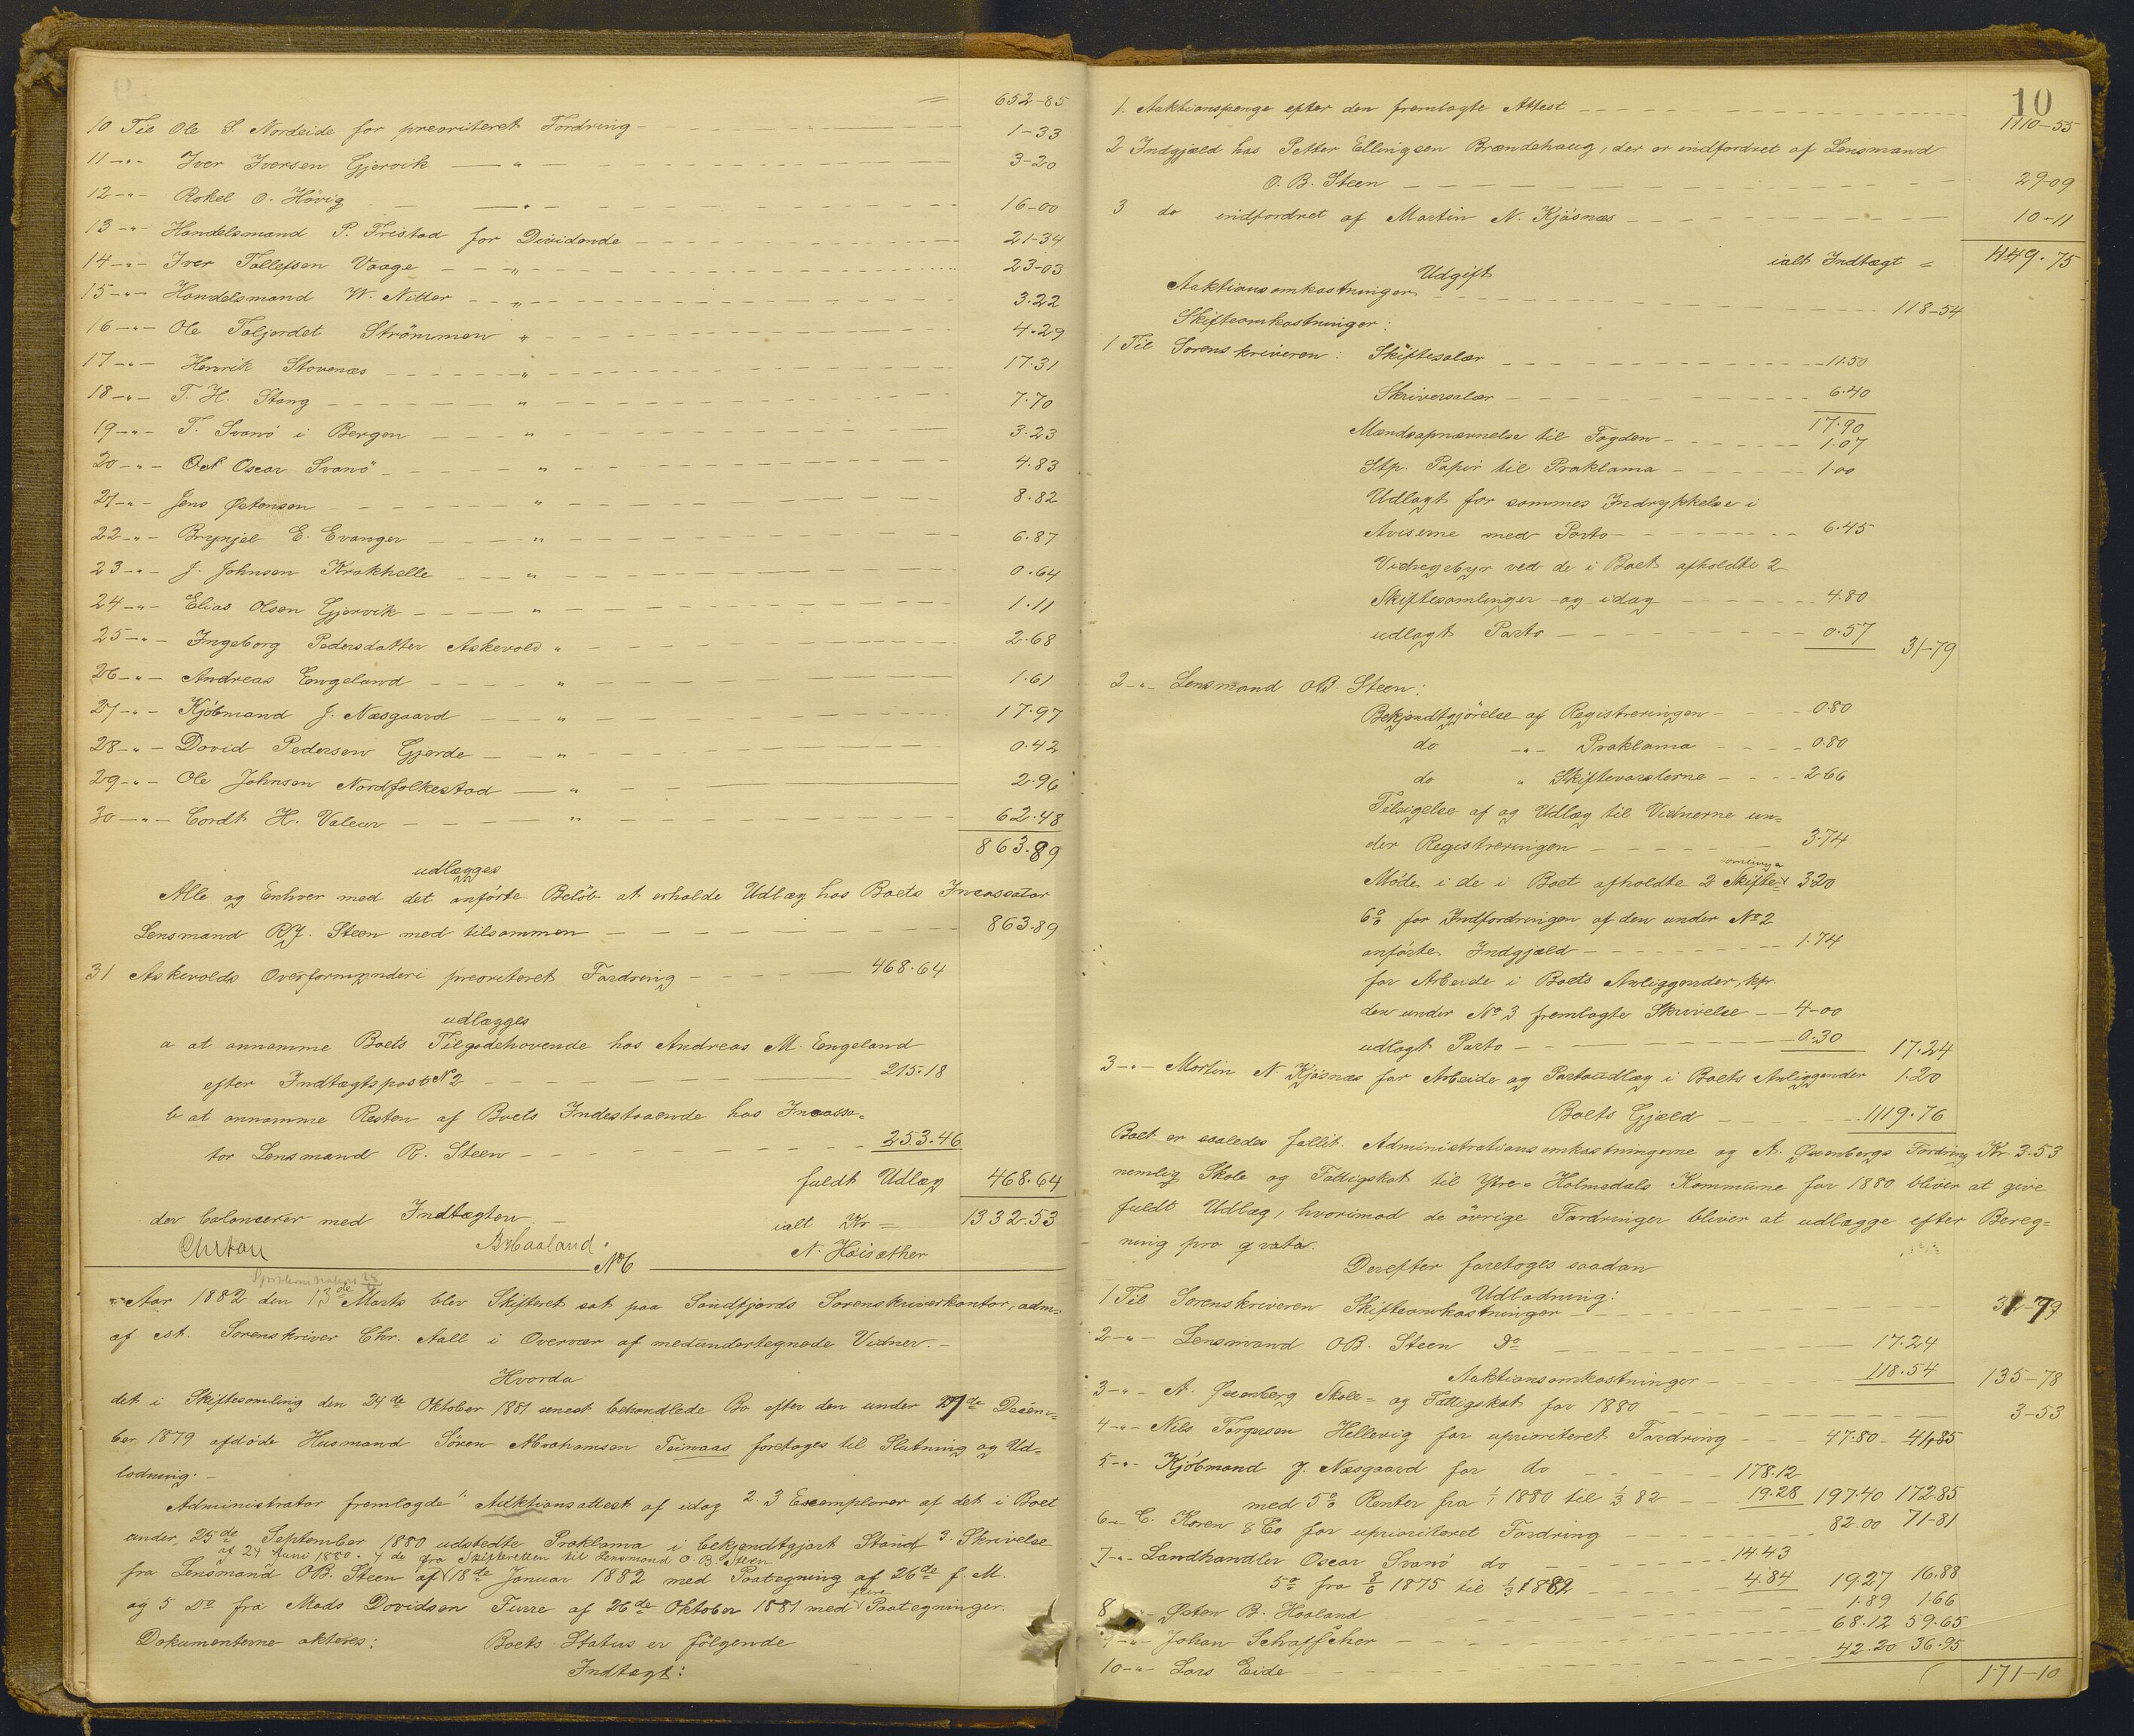 = 652-85
10 Til Ole S. Nordeide for preoriteret Fordring 1-33
11 -"- Iver Iversen Gjervik " 3-20
12 -"- Rakel O. Hövig " 16-00
13 -"- Handelsmand P. Tristad for Dividende 21-34
14 -"- Iver Tollefsen Vaage " 23-03
15 -"- Handelsmand W. Nitter " 3.22
16 -"- Ole Taljordet Strömmen " 4.29
17 -"- Henrik Stavenæs " 17.31
18 -"- T. H. Stang " 7.70
19 -"- T. Svanö i Bergen " 3.23
20 -"- Oscar Svanö " 4.83
21 -"- Jens Østensen " 8.82
22 -"- Brynjel E. Evanger " 6.87
23 -"- J. Johnsen Krakhelle " 0.64
24 -"- Elias Olsen Gjervik " 1.11
25 -"- Ingeborg Pedersdatter Askevold " 2.68
26 -"- Andreas Engeland " 1.61
27 -"- Kjöbmand J. Næsgaard " 17.97
28 -"- David Pedersen Gjerde " 0.42
29 -"- Ole Johnsen Nordfolkestad " 2.96
30 -"- Cordt H. Valeur " 62.48
863.89
udlægges
Alle og Enhver med det anførte Belöb at erholde Udlæg hos Boets Incassator
Lensmand R. Steen med tilsammen 863.89
31 Askevolds Overformynderi preoriteret Fordring 468.64
udlægges
a at annamme Boets Tilgodehavende hos Andreas M. Engeland
efter Indtægtspost No 2 215.18
b at annamme Resten af Boets Indestaaende hos Incassa-
tor Lensmand R. Steen 253.46
fuldt Udlæg 468.64
der balancerer med Indtægten. ialt Kr = 1332.53
Chr Aall B. Haaland N. Höisæther
No 6
Aar 1882 den 13de Marts blev Skifteret sat paa Söndfjords Sorenskriverkontor, adm.
af cst. Sorenskriver Chr. Aall i Overvær af medundertegnede Vidner.
Hvorda
det i Skiftesamling den 24de Oktober 1881 senest behandlede Bo efter den under 27de Decem-
ber 1879 afdöde Husmand Sören Abrahamsen foretoges til Slutning og Ud-
lodning.
Administrator fremlagde 1. Auktionsattest af idag 2. 3 Exemplarer af det i Boet
under 25de September 1880 udstedte Proklama i bekjendtgjort Stand 3. Skrivelse
af 24 Juni 1880. 4 do fra Skifteretten til Lensmand O B. Steen
fra Lensmand OB. Steen af 18de Januar 1882 med Paategning af 26de f. M.
og 5 Do fra Mads Davidsen Furre af 26de Oktober 1881 med flere Paategninger.
Dokumenterne akteres: Boets Status er følgende
Indtægt:
10
1. Auktionspenge efter den fremlagte Attest 1110-55
2 Indgjæld hos Petter Ellingsen Brændehaug, der er indfordret af Lensmand
O. B. Steen 29-09
3 do indfordret af Martin N. Kjösnæs 10-11
ialt Indtægt = 1149.75
Udgift
Auktionsomkostninger 118-54
Skifteomkostninger:
1 Til Sorenskriveren: Skiftesalær 11.50
Skriversalær 6.40
17.90
Mandsopnævnelse til Fogden 1.07
Stp. Papir til Proklama 1.00
Udlagt for sammes Indrykkelse i
Aviserne med Porto 6.45
Vidnegebyr ved de i Boet afholdte 2
Skiftesamlinger og idag 4.80
udlagt Porto 0.57 31-79
2 -"- Lensmand OB. Steen:
Bekjendtgjörelse af Registreringen 0.80
do -"- Proklama 0.80
do " Skiftevarslerne 2.66
Tilsigelse af og Udlæg til Vidnerne un-
der Registreringen 3.74
Möde i de i Boet afholdte 2 Skiftesamlinger 3.20
6 % for Indfordringen af den under No 2
anförte Indgjæld 1.74
for Arbeide i Boets Anliggender, kfr.
den under No 3 fremlagte Skrivelse 4-00
udlagt Porto 0.30 17.24
3 -"- Martin N Kjösnæs for Arbeide og Portoudlæg i Boets Anliggender 1.20
Boets Gjæld 1119.76
Boet er saaledes fallit. Administrationsomkostningerne og A. Øxenbergs Fordring Kr. 3.53
nemlig Skole og Fattigskat til Ytre-Holmedals Kommune for 1880 bliver at give
fuldt Udlæg, hvorimod de övrige Fordringer bliver at udlægge efter Bereg-
ning pro qvota.
Derefter foretoges saadan
Udlodning:
1 Til Sorenskriveren Skifteomkostninger 31-79
2 -"- Lensmand OB. Steen Do 17.24
Auktionsomkostninger 118.54 135-78
3 -"- A. Øxenberg Skole- og Fattigskat for 1880 3-53
4 -"- Nils Torgersen Hellevig for uprioriteret Fordring 47.80 41.85
5 -"- Kjöbmand J. Næsgaard for do 178.12
med 5 % Renter fra 1/1 1880 til 1/3 82 19.28 197.40 172.85
6 -"- C. Koren & Co for uprioriteret Fordring 82.00 71-81
7 -"- Landhandler Oscar Svanö do 14.43
5 % fra 8/6 1875 til 1/3 1882 4.84 19.27 16.88
8 -"- Østen B. Haaland 1.89 1.66
9 -"- Johan Schaffscher 68.12 59.65
10 -"- Lars Eide 42.20 36.95
171-10